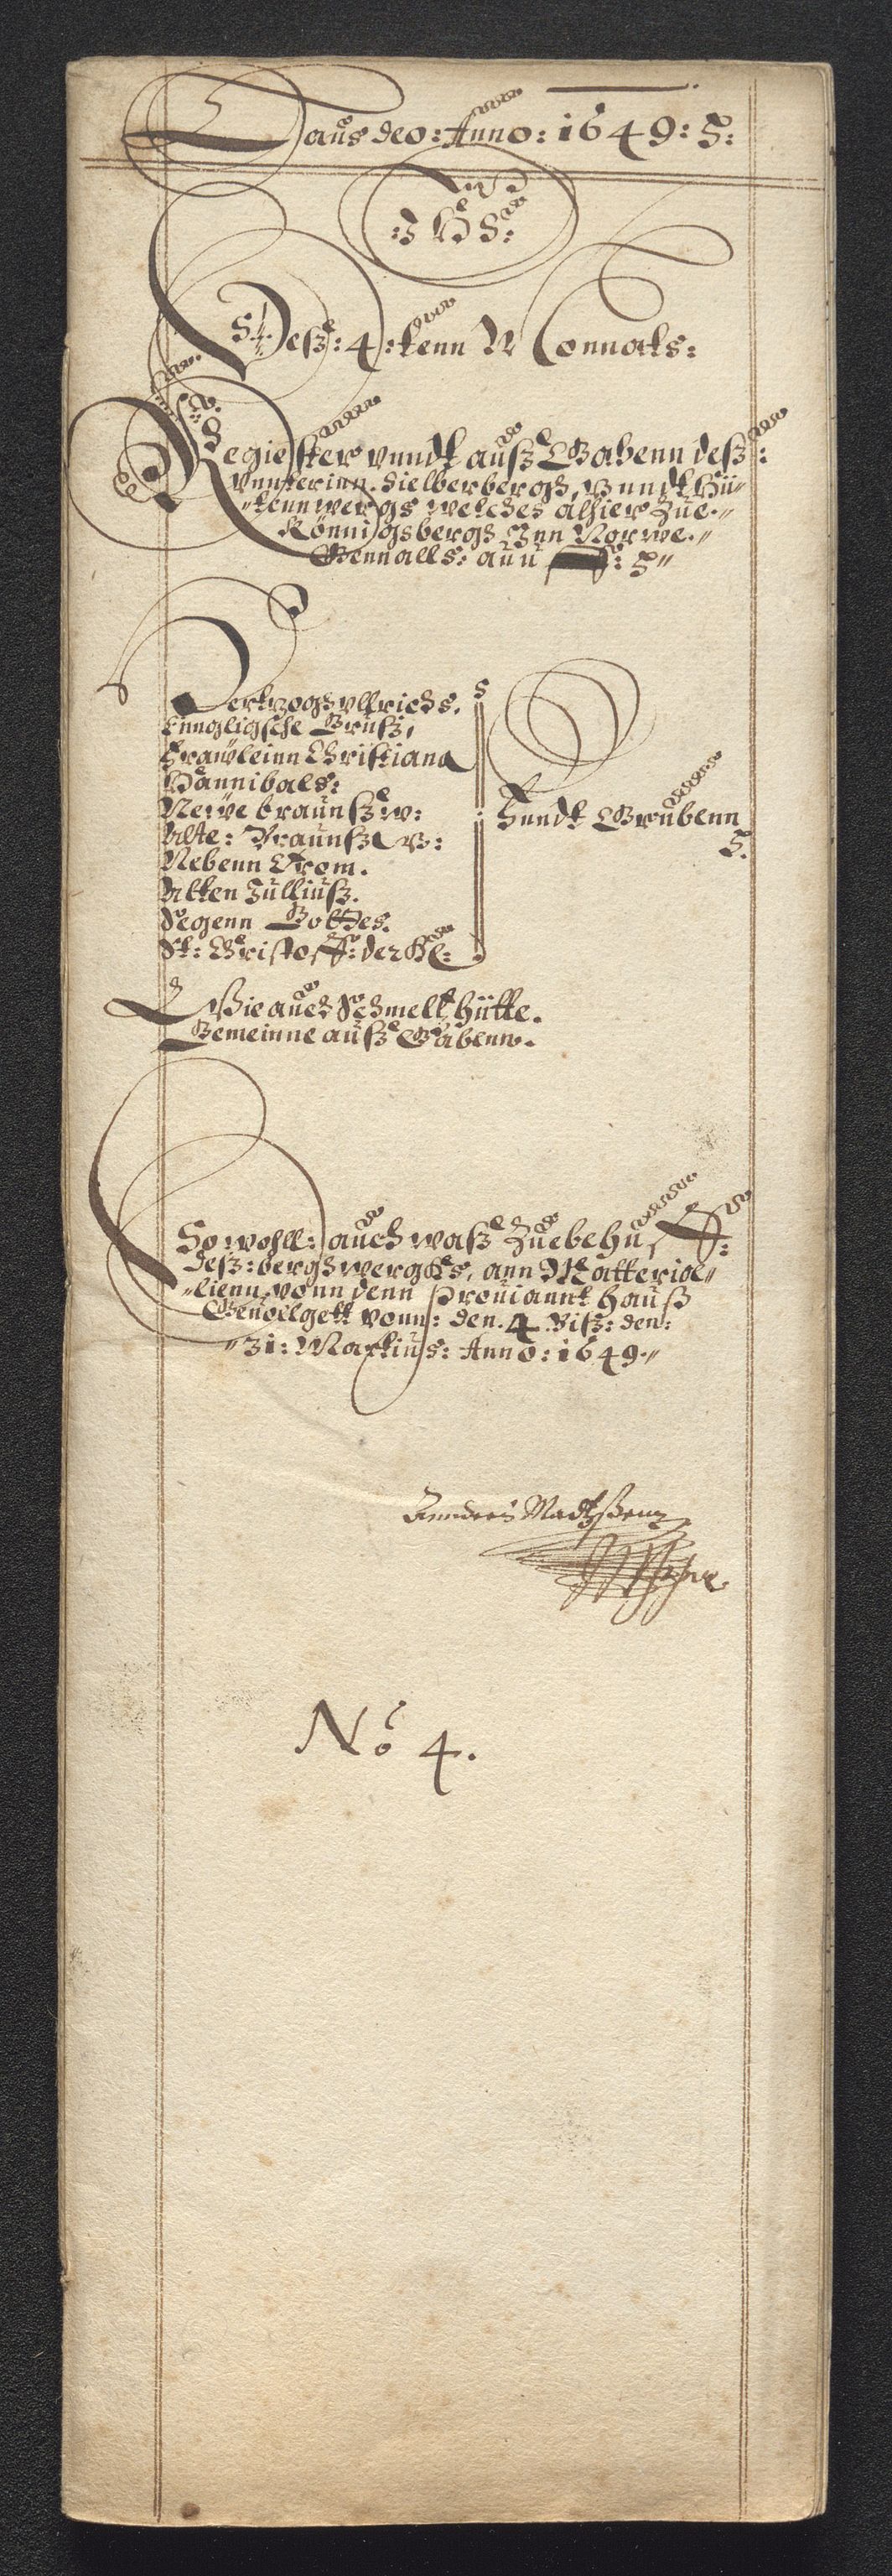 Laus deo: Anno: 1649: S:
: J H S :
Deß: 4: tenn Monnats:
Regiester vnndt auß Gabenn deß:
vnnterinn. Sielberbergs, Vnndt Hü//
//tennwergs welches alhier Zue.//
Könnigsbergs Inn Norwe.//
Gennalls: auu
Hertzogs vllrichs.
Cünngligsche Grüß,
Frauwleinn Christiana
Hannibals:
Neiwe braunßw:
Alte: Braunßw:
Nebenn Trom.
Alten Julliuß.
Segenn Gottes.
St: Cristoff: der Kl:
Fundt Grubenn
S.
Wie auch Schmeltz hütte.
Gemeinne auß Gabenn.
So wohll: auch waß Zue behuff:
deß: bergswergks, ann Matterial//
//lienn, vonn denn Proviannt hauß
Gevollgett vonn: den. 4. Biß: den:
//31: Martius: Anno: 1649.//
Anders Madtzßenn
No 4.